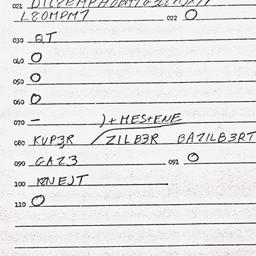 021
L80MPM7 022 O
030 QT
040 O
050 O
060 O
070 — )+MES+ENE
080 KUP3R / ZILB3R BAZILB3RT
090 GAZ3 091 O
100 KNEJT
110 O